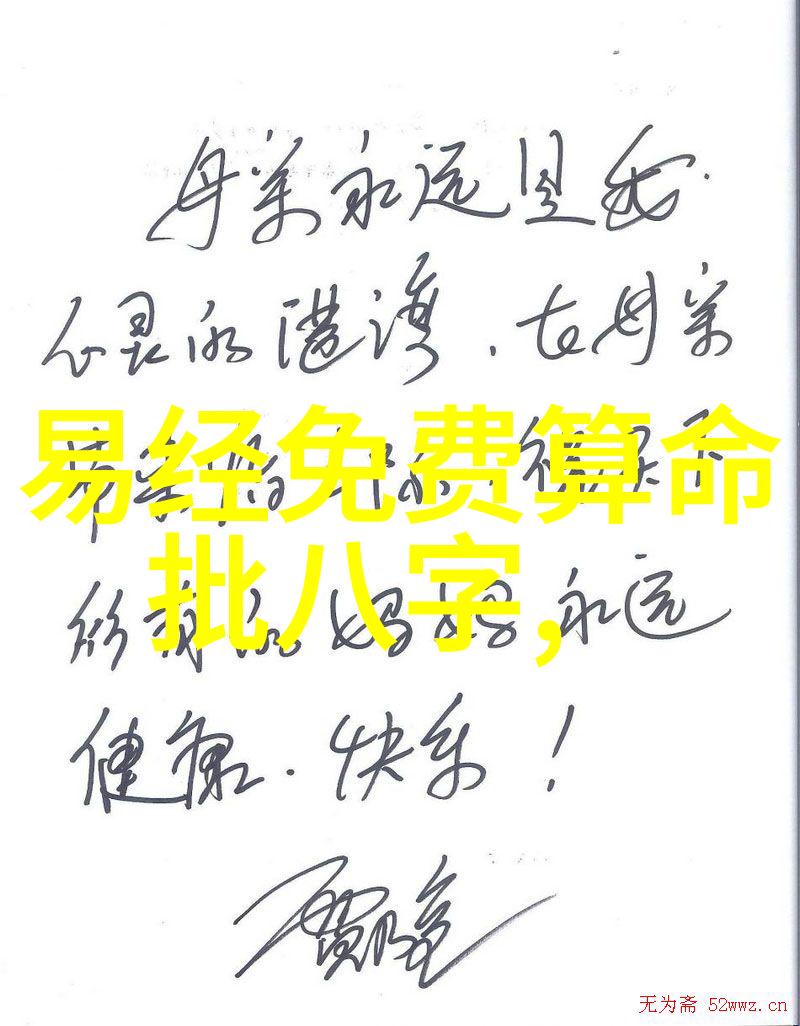 母亲永远是我
心灵的港湾，在母亲
节
易经免费算命
批八字，
所有的妈妈永远
健康．快乐！
无为斋 52wwz.cn